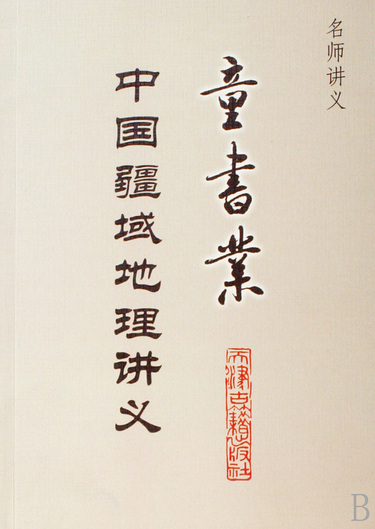 名师讲义
童書業
中国疆域地理讲义
天津古籍出版社
B